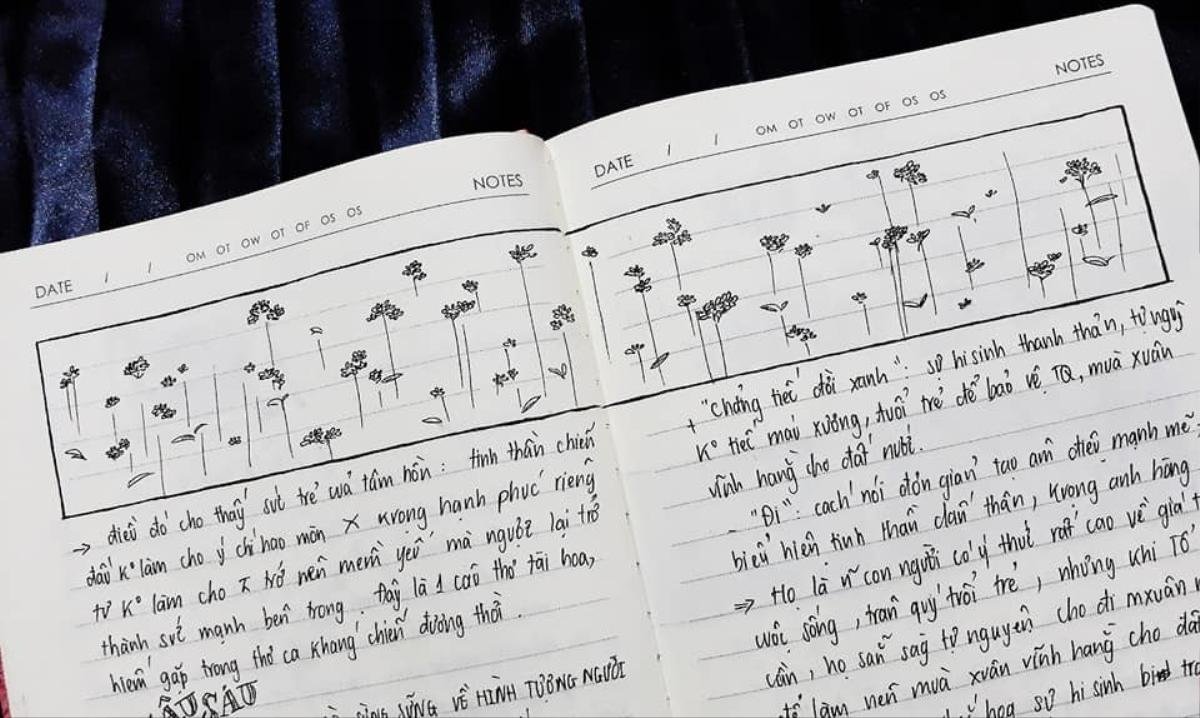 DATE / / OM OT OW OT OF OS OS NOTES
→ điều đó cho thấy sức trẻ của tâm hồn : tinh thần chiến
đấu Kº làm cho ý chí hao mòn X trong hạnh phúc riêng
tư Kº làm cho trở nên mềm yếu mà người lại trở
thành sức mạnh bên trong. Đây là 1 câu thơ tài hoa,
hiếm gặp trong thơ ca kháng chiến đương thời.
ẬU SÁU
SỪNG SỮNG VỀ HÌNH TƯỢNG NGƯỜI
DATE / / OM OT OW OT OF OS OS NOTES
+ "Chẳng tiếc đời xanh" : sự hi sinh thanh thản, tự nguy
Kº tiếc máu xương, tuổi trẻ để bảo vệ TQ, mùa xuân
vĩnh hằng cho đất nước.
- "Đi" : cách nói đơn giản tạo âm điệu mạnh mẽ
biểu hiện tinh thần dấn thân, trong anh hùng
⇒ Họ là n~ con người có ý thức rất cao về giá t
cuộc sống, trân quý tuổi trẻ, nhưng khi Tổ
cần, họ sẵn sàg tự nguyện cho đi mxuân
để làm nên mùa xuân vĩnh hằng cho đất
hoa sự hi sinh